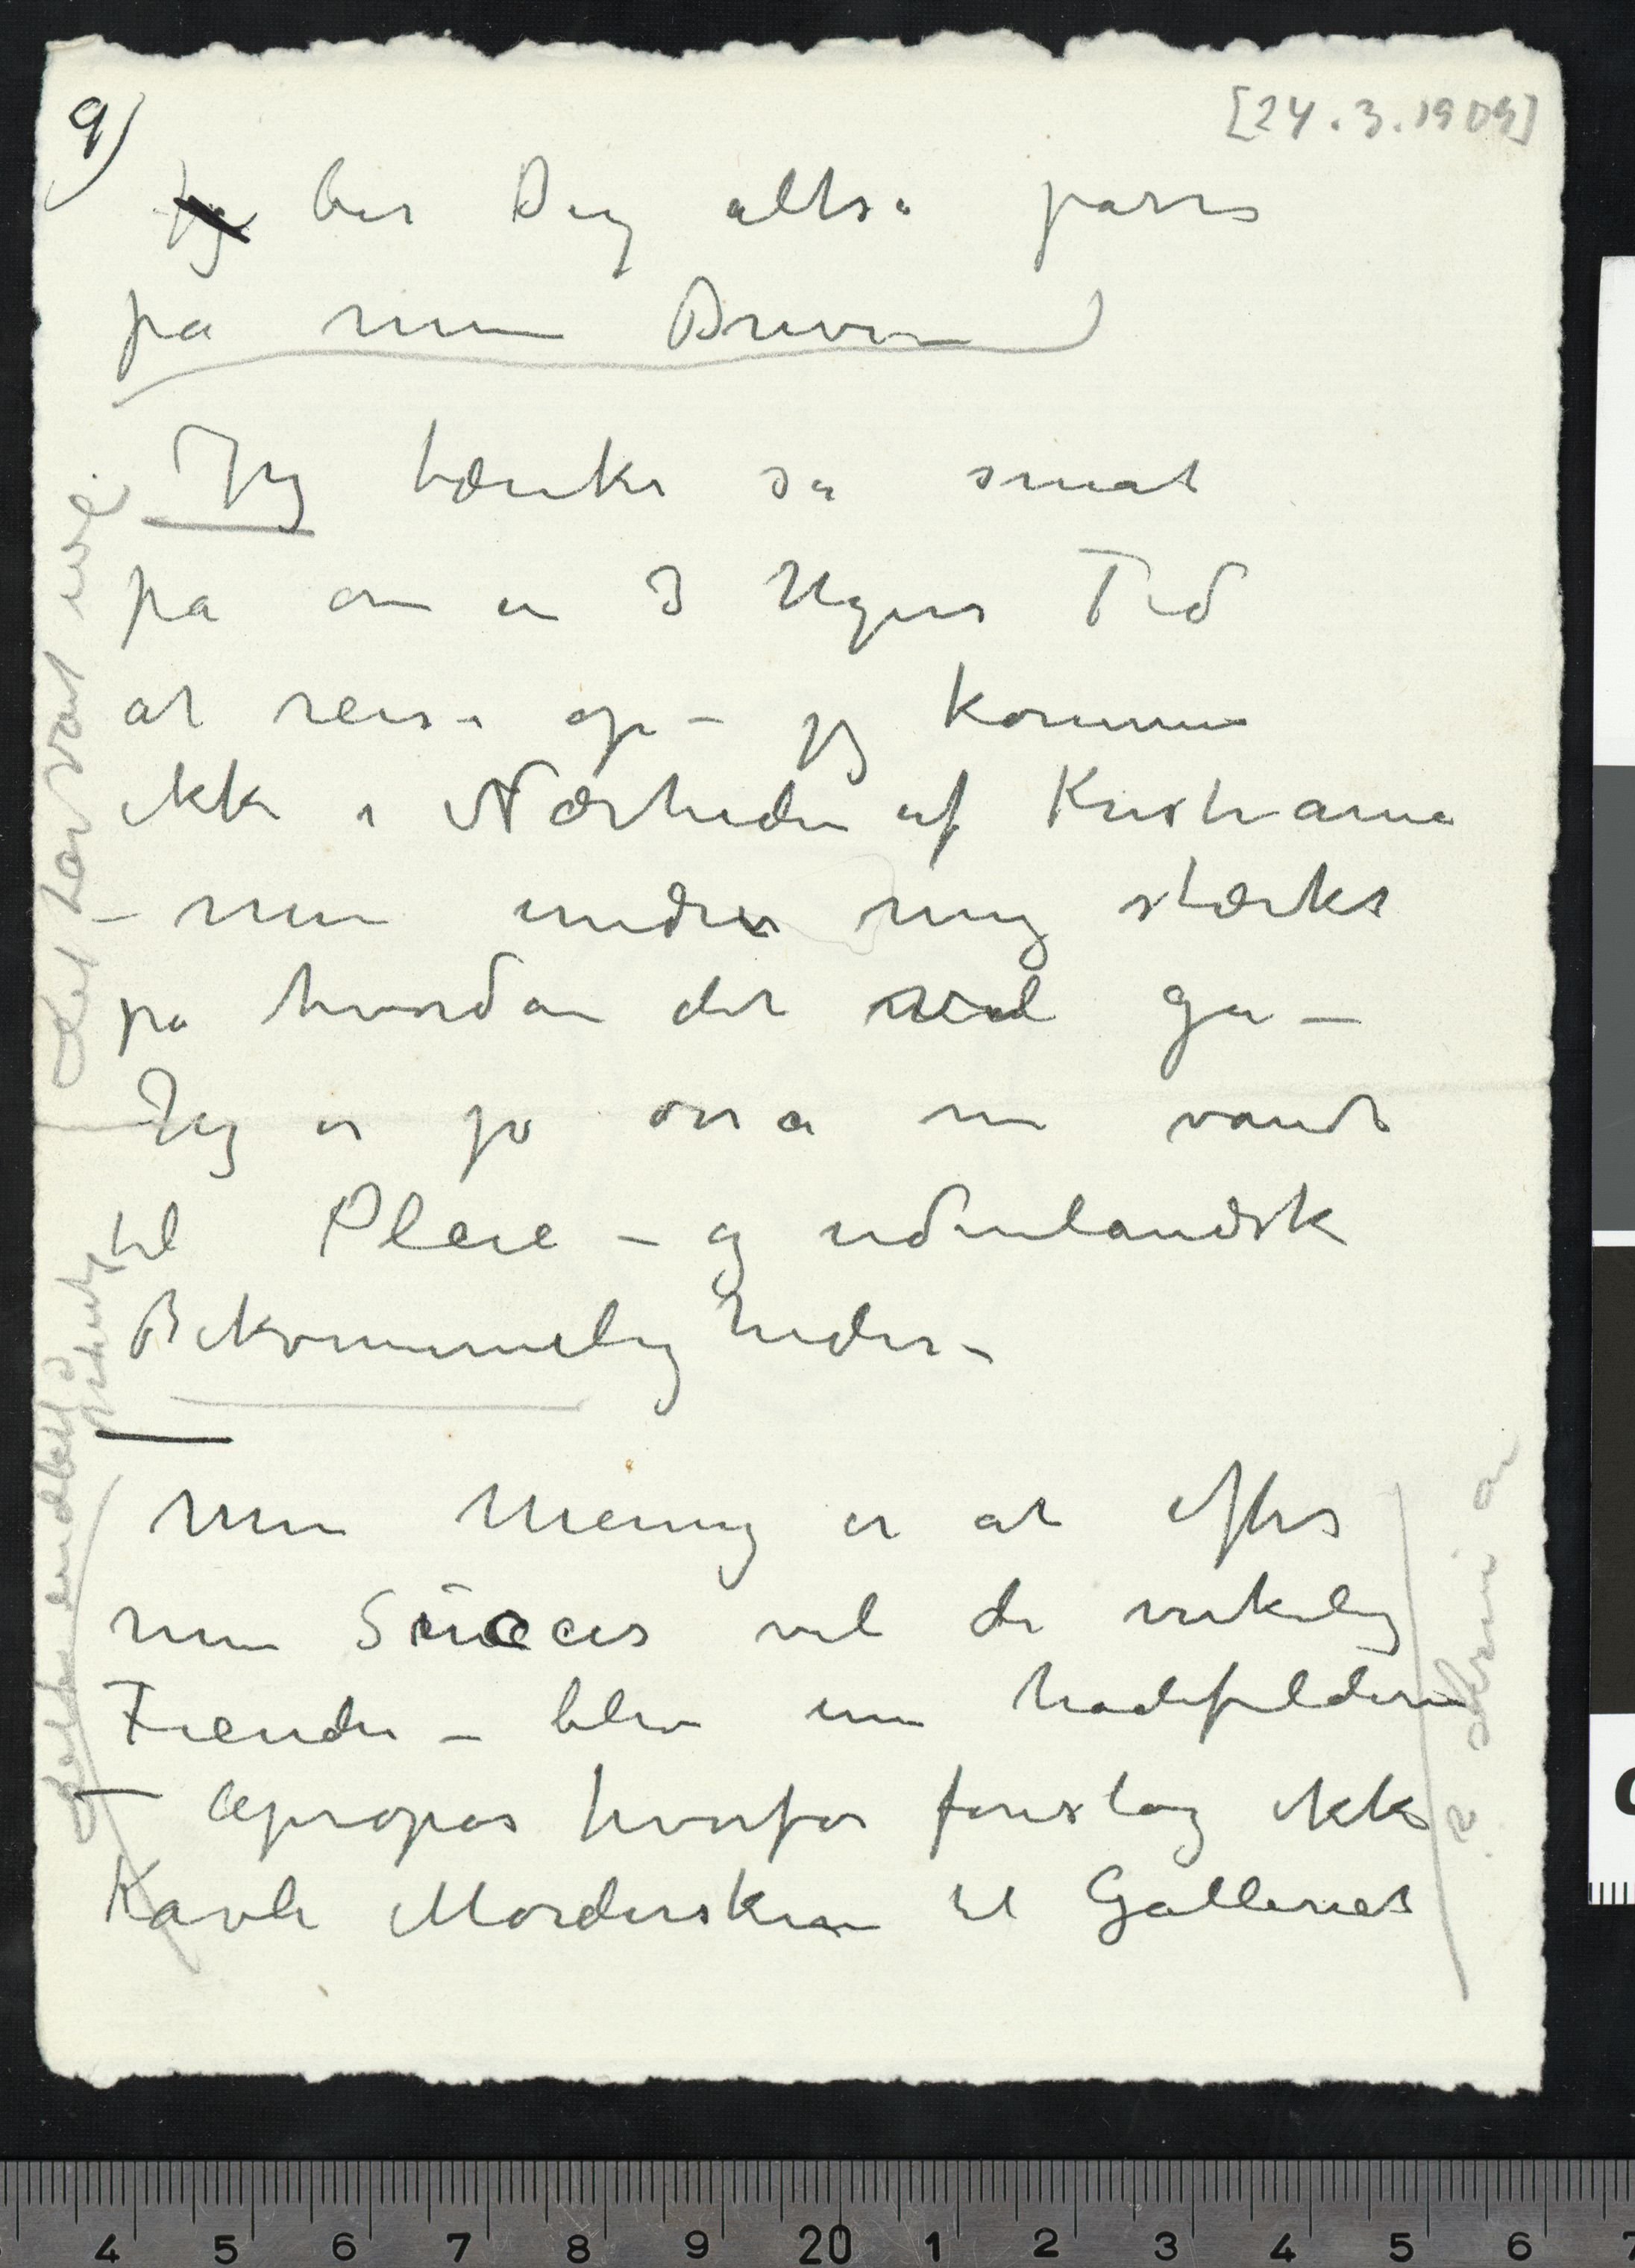 9)
[24.3.1909]
Jeg ber Dig altså passe
på mine Breve
Jeg tænker så småt
på om en 3 Ugers Tid
at reise op – jeg kommer
ikke i Nærheden af Kristiania
– men undres mig stærkt
på hvordan det vil gå –
Jeg er jo også nu vandt
til Pleie – og udenlandsk
Bekvemmeligheder –
Min Mening er at efter
min Succes vil de virkelig
Fiender – blive mere hadefulde
– Apropos hvorfor foreslog ikke
Kavli Mordersken til Galleriet
Det har vært